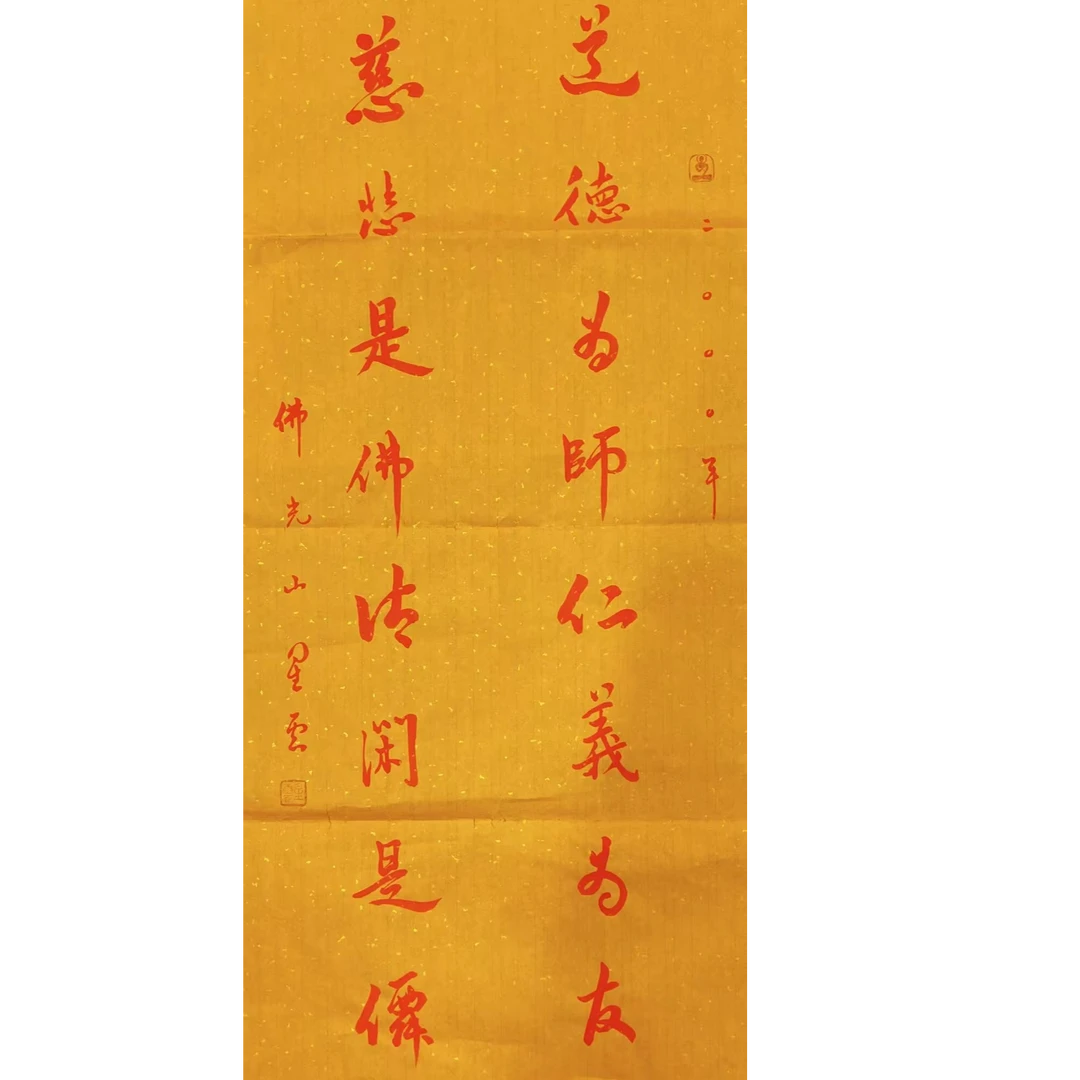 二〇〇〇年
道德為師仁義為友
慈悲是佛清閑是僊
佛光山星雲